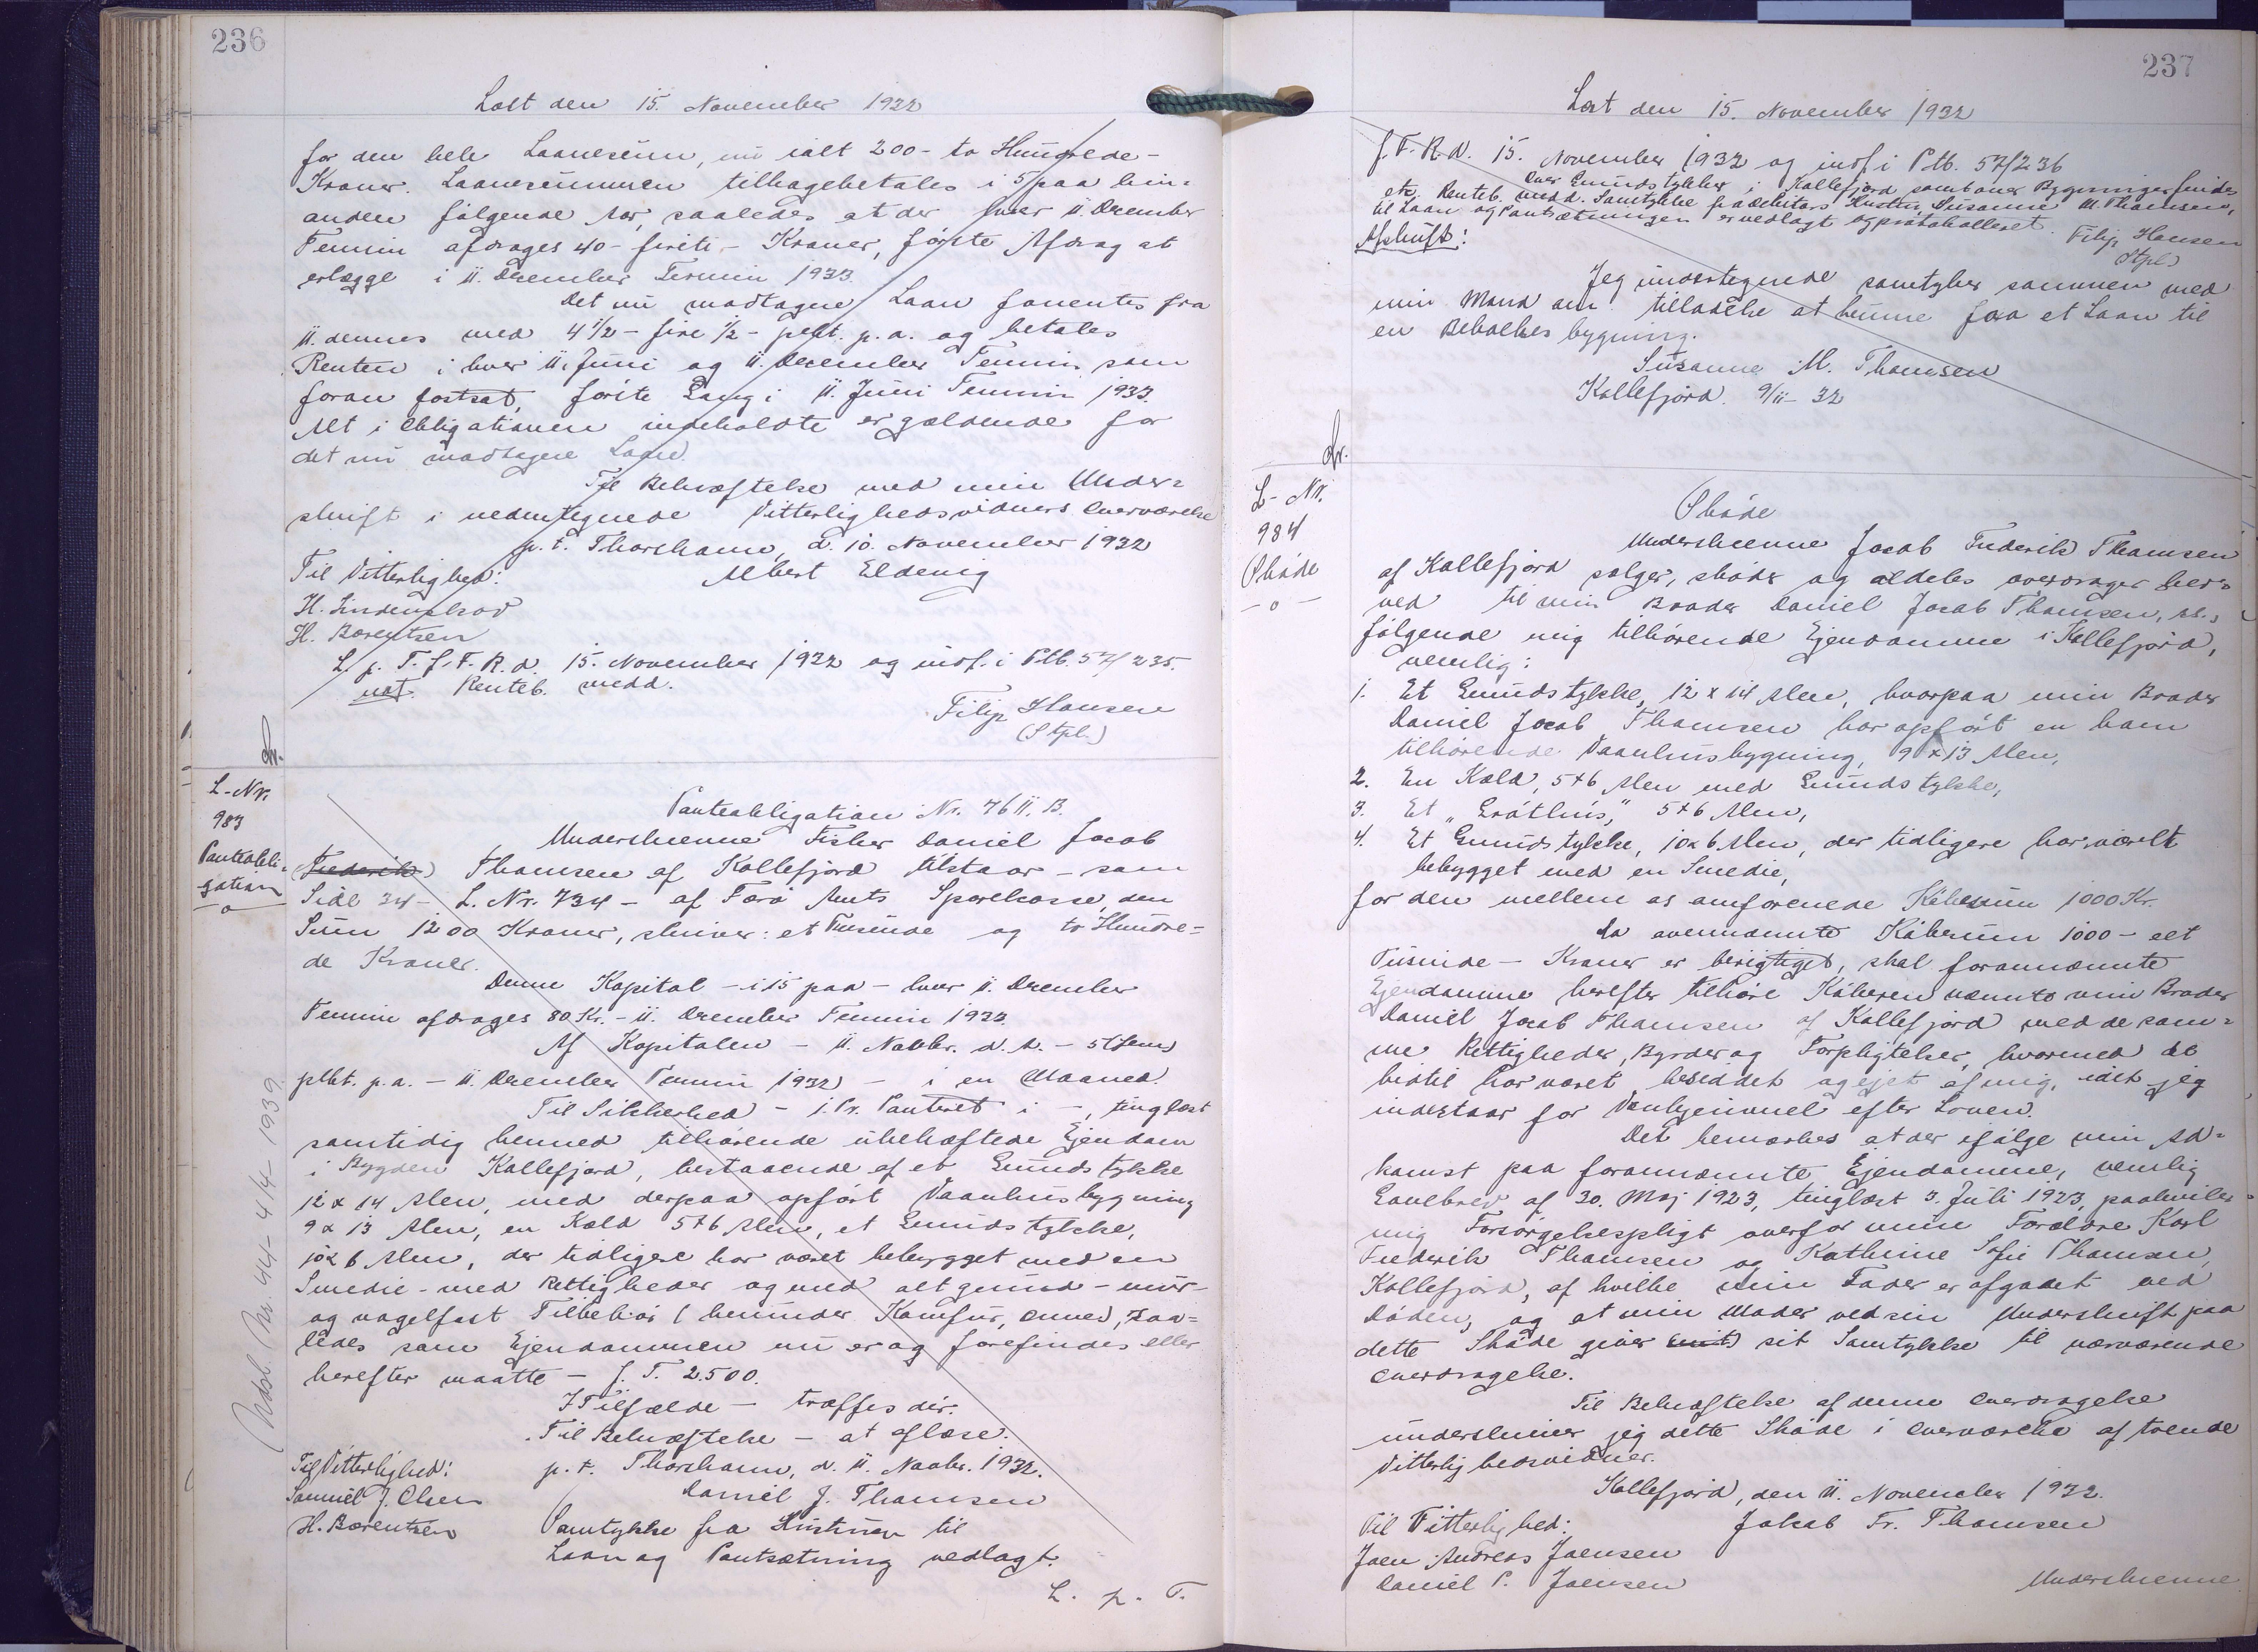 236
Læst den 15. November 1932
for den hele Laanesum, nu ialt 200 - to Hundrede -
Kroner. Laanesummen tilbagebetales i 5 paa hin-
anden følgende Aar, saaledes at der hver 11. December
Termin afdrages 40 - firëti - Kroner, første Afdrag at
erlægge i 11. December Termin 1933.
Det nu modtagne Laan forrentes fra
11. dennes med 4 1/2 - fire 1/2 - pCt. p.a. og betales
Renten i hver 11. Juni og 11. December Termin som
foran fastsat, første Gang i 11. Juni Termin 1933.
Alt i Obligationen indeholdte er gældende for
det nu modtagne Laan.
Til Bekræftelse med min Under-
skrift i nedentegnede Vitterlighedsvidners Overværelse
p.t. Thorshavn, d. 10. November 1932
Til Vitterlighed: Albert Eldevig
H. Lindenskov
H. Børentsen
L. p. T. f. F. R. d. 15. November 1932 og indf. i Ptb. 57/235.
not. Renteb. medd.
Filip Hansen
(Stpl.)
L-Nr.
983
Panteobli-
gation
-o-
Panteobligation Nr. 7611. B.
Underskrevne Fisker Daniel Jacob
(Frederik) Thomsen af Kollefjord tilstaar - som
Side 34 - L. Nr. 734 - af Færø Amts Sparekasse, den
Sum 1200 Kroner, skriver: et Tusinde og to Hundre-
de Kroner.
Denne Kapital - i 15 paa - hver 11. December
Termin afdrages 80 Kr. - 11. December Termin 1933.
Af Kapitalen - 11. Novbr. d. A. - 5 (fem)
pCt. p.a. - 11. December Termin 1932 - i en Maaned.
Til Sikkerhed - 1. Pr. Panteret i -, tinglæst
samtidig hermed tilhørende ubehæftede Ejendom
i Bygden Kollefjord, bestaaende af et Grundstykke
12 x 14 Alen, med derpaa opført Vaanhusbygning
9 x 13 Alen, en Kæld 5+6 Alen, et Grundstykke,
10 x 6 Alen, der tidligere har været bebygget med en
Smedie - med Rettigheder og med alt grund - mur-
og nagelfast Tilbehør (herunder Komfur, Ovne), saa-
ledes som Ejendommen nu er og forefindes eller
herefter maatte - f. T. 2.500.
I Tilfælde - træffes dér.
Til Bekræftelse - at aflæse.
Til Vitterlighed: p.t. Thorshavn, d. 11. Novbr. 1932.
Samuel J. Olsen Daniel J. Thomsen
H. Børentsen Samtykke fra Hustruen til
Laan og Pantsætning vedlagt.
L. p. T.
Udsl. Nr. 44 - 4/4 - 1939
237
Læst den 15. November 1932
f. F. R. d. 15. November 1932 og indf. i Ptb. 57/236
Over Grundstykker i Kollefjord samt over Bygninger findes
Renteb. medd. Samtykke fra Debitors Hustru Susanne M. Thomsen,
til Laan og Pantsætningen er vedlagt og protokolleret. Filip Hansen
(Stpl.)
Afskrift:
Jeg undertegnede samtykker sammen med
min Mand om tilladelse at kunne faa et Laan til
en Beboelses bygning.
Susanne M. Thomsen
Kollefjord 9/11 - 32
L-Nr.
984
Skøde
-o-
Skøde
Underskrevne Jacob Frederik Thomsen
af Kollefjord sælger, skøder og aldeles overdrager her-
ved til min Broder Daniel Jacob Thomsen, ss.,
følgende mig tilhørende Ejendomme i Kollefjord,
nemlig:
1. Et Grundstykke, 12 x 14 Alen, hvorpaa min Broder
Daniel Jacob Thomsen har opført en ham
tilhørende Vaanhusbygning, 9 x 13 Alen,
2. En Kæld, 5+6 Alen med Grundstykke,
3. Et "Gróthús," 5+6 Alen,
4. Et Grundstykke, 10 x 6 Alen, der tidligere har været
bebygget med en Smedie,
for den mellem os omforenede Købesum 1000 Kr.
Da ovennævnte Købesum 1000 - eet
Tusinde - Kroner er berigtiget, skal forannævnte
Ejendomme herefter tilhøre Køberen nævnte min Broder
Daniel Jacob Thomsen af Kollefjord med de sam-
me Rettigheder, Byrder og Forpligtelser, hvormed de
hidtil har været besiddet og ejet af mig, idet jeg
indestaar for Vanhjemmel efter Loven.
Det bemærkes at der ifølge min Ad-
komst paa forannævnte Ejendomme, nemlig
Gavebrev af 30. Maj 1923, tinglæst 3. Juli 1923, paahviler
mig Forsørgelsespligt overfor mine Forældre Karl
Frederik Thomsen og Kathrine Sofie Thomsen,
Kollefjord, af hvilke min Fader er afgaaet ved
Døden, og at min Moder ved sin Underskrift paa
dette Skøde giver (mit) sit Samtykke til nærværende
Overdragelse.
Til Bekræftelse af denne Overdragelse
underskriver jeg dette Skøde i Overværelse af tvende
Vitterlighedsvidner.
Kollefjord, den 11. November 1932.
Til Vitterlighed: Jakob Fr. Thomsen
Joen Andreas Joensen
Daniel P. Joensen
Underskrevne